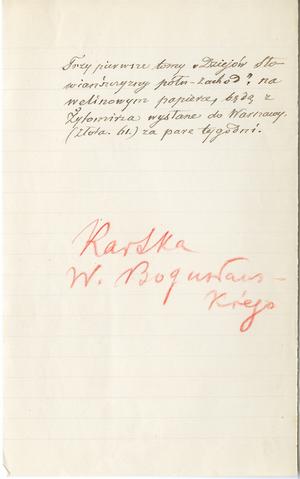 Trzy pierwsze tomy „Dziejów Sło
wiańszczyzny półn.-zachod." na
welinowym papierze, będą z
Żytomirza wysłane do Warszawy
(Złota. 61.) za parę tygodni.
Kartka
W. Bogusław-
skiego